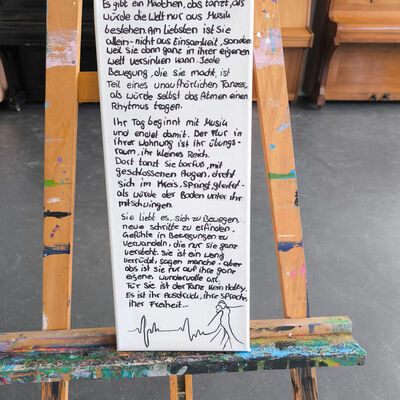 Es gibt ein Mädchen, das tanzt, als
würde die Welt nur aus Musik
bestehen. Am Liebsten ist sie
allein - nicht aus Einsamkeit, sondern
weil sie dann ganz in ihrer eigenen
Welt versinken kann. Jede
Bewegung, die sie macht, ist
Teil eines unaufhörlichen Tanzes,
als würde selbst das Atmen einen
Rhytmus tragen.
Ihr Tag beginnt mit Musik
und endet damit. Der Flur in
ihrer Wohnung ist ihr Übungs-
raum, ihr kleines Reich.
Dort tanzt sie barfus, mit
geschlossenen Augen, dreht
sich im Kreis, springt, gleitet -
als würde der Boden unter ihr
mitschwingen.
Sie liebt es, sich zu Bewegen,
neue Schritte zu erfinden,
Gefühle in Bewegungen zu
verwandeln, die nur sie ganz
versteht. Sie ist ein wenig
verrückt, sagen manche - aber
das ist sie nur auf ihre ganz
eigene, wundervolle art.
Für sie ist der Tanz kein Hobby.
Es ist ihr Ausdruck, ihre Sprache,
ihre Freiheit...